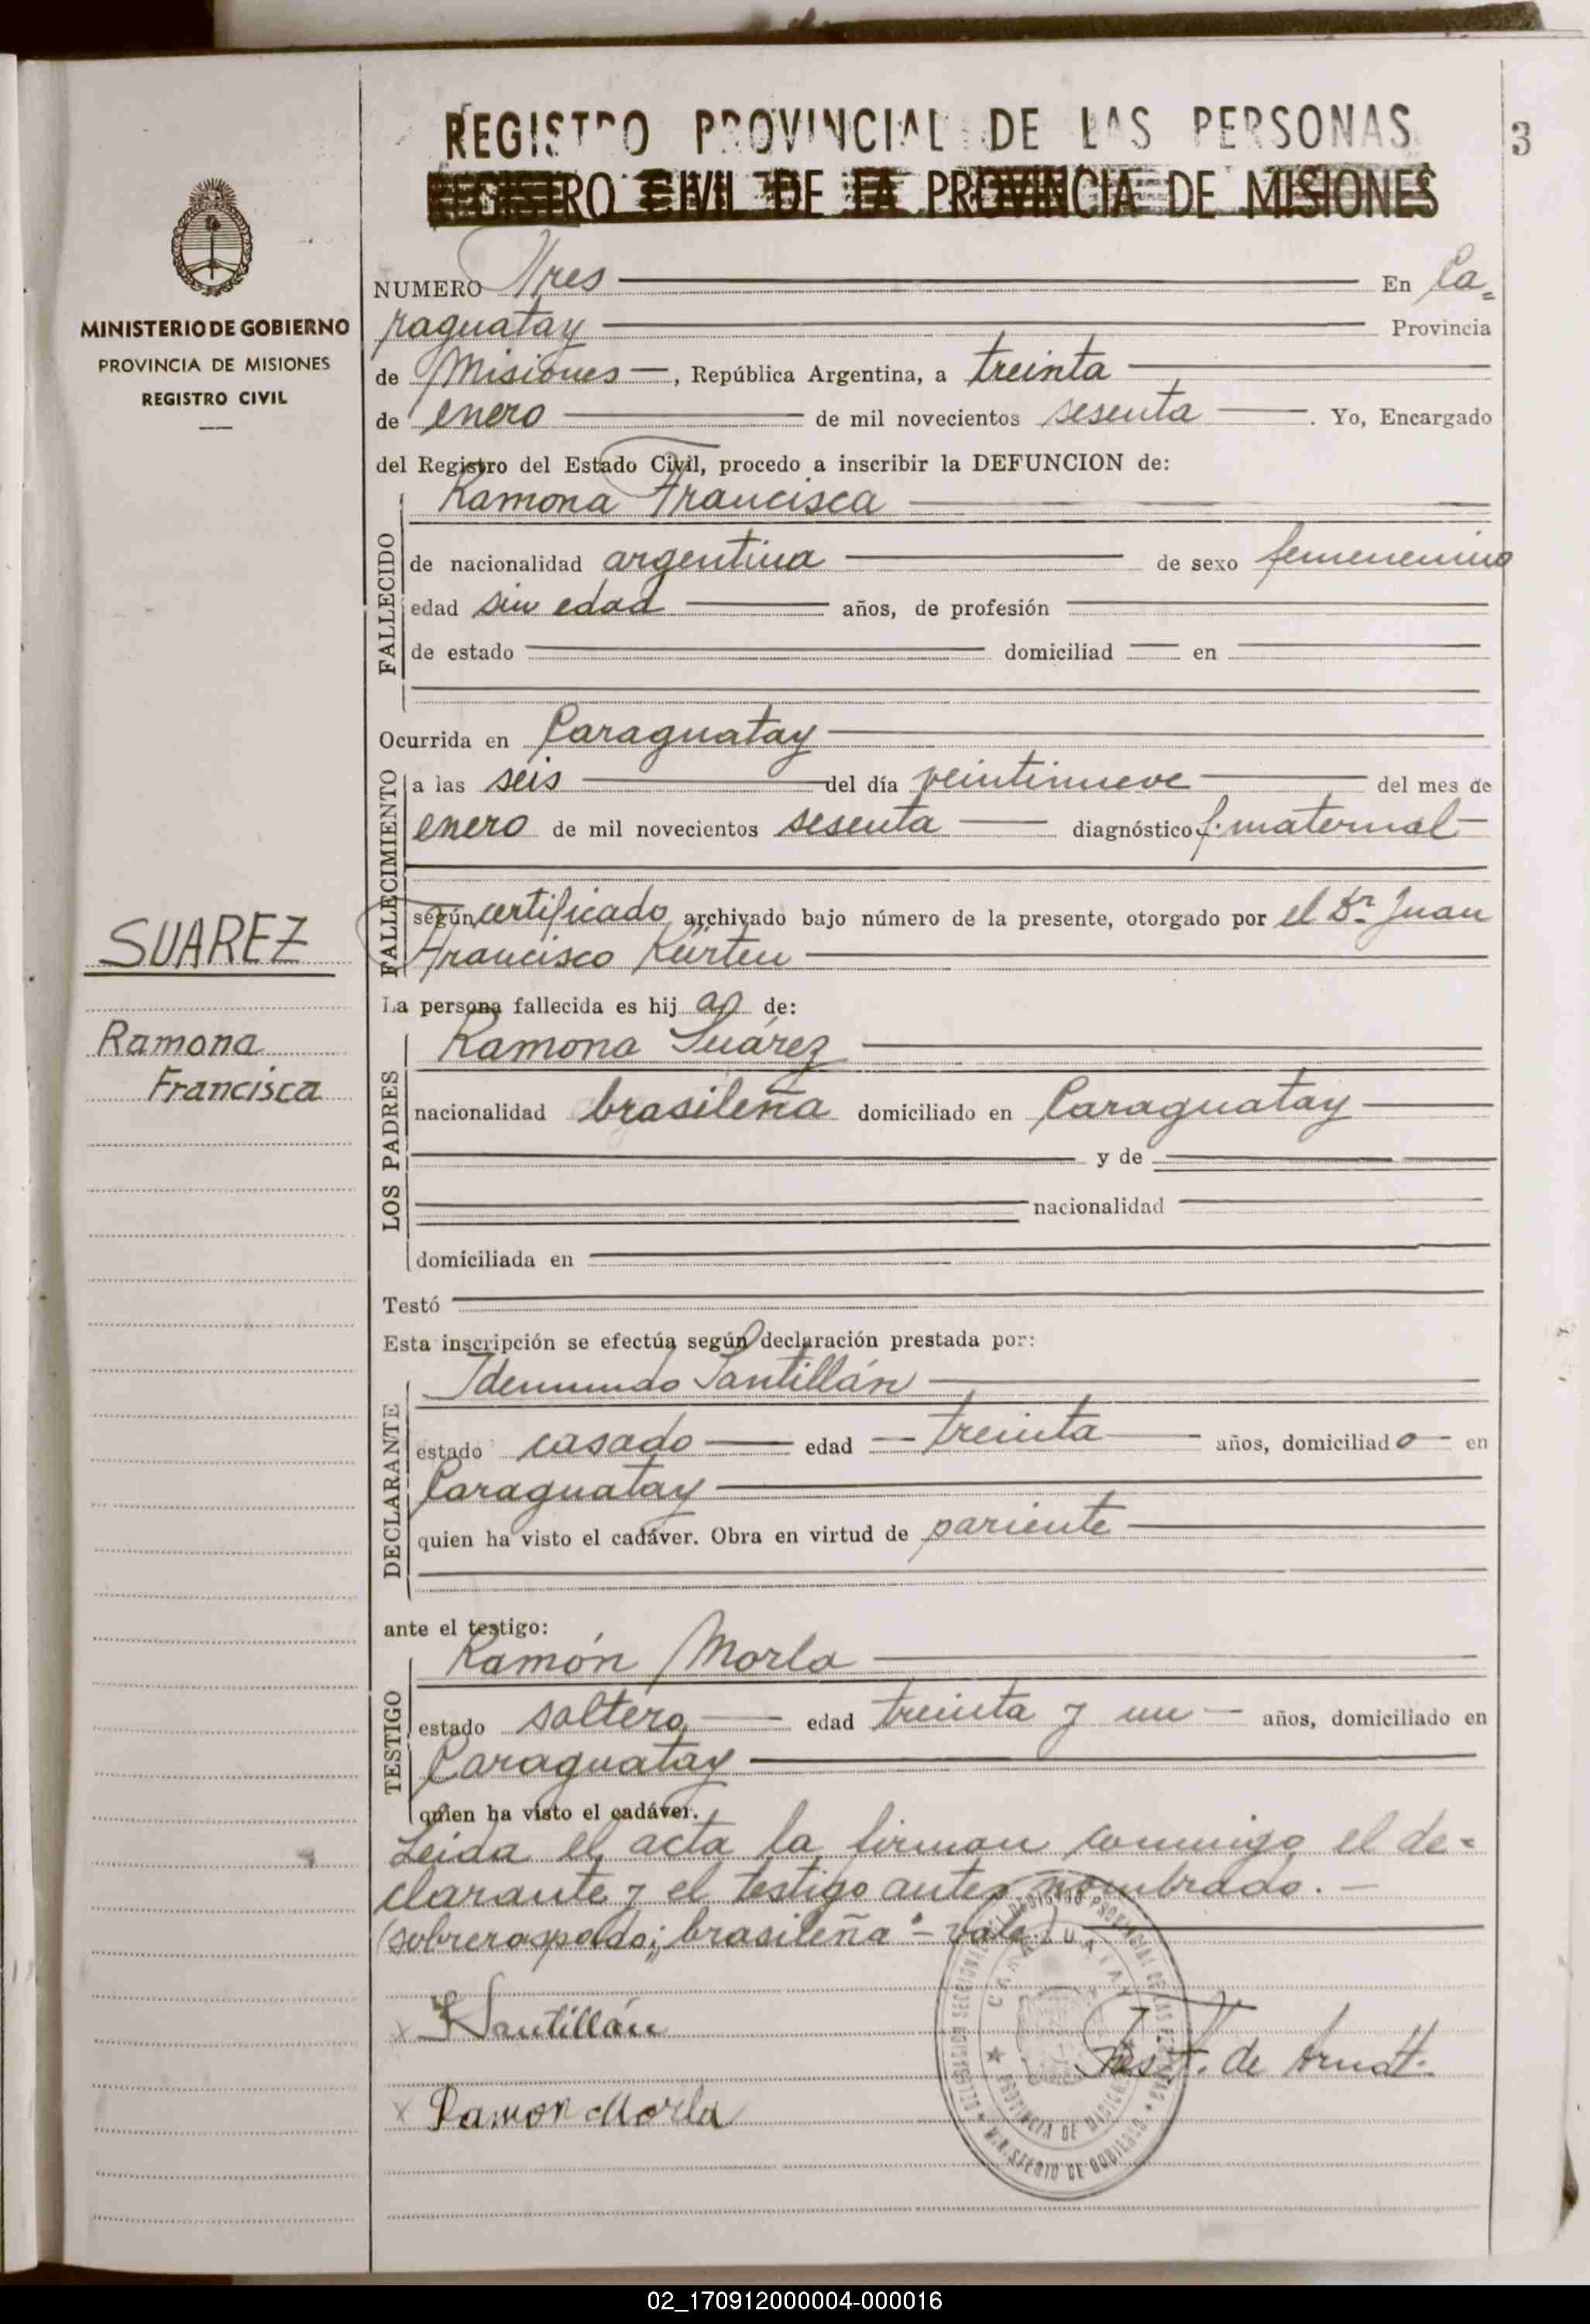 3
REGISTRO PROVINCIAL DE LAS PERSONAS
REGISTRO CIVIL DE LA PROVINCIA DE MISIONES
MINISTERIO DE GOBIERNO
PROVINCIA DE MISIONES
REGISTRO CIVIL
SUAREZ
Ramona
Francisca
NUMERO Tres En Ca=
raguatay Provincia
de Misiones, República Argentina, a treinta
de enero de mil novecientos sesenta. Yo, Encargado
del Registro del Estado Civil, procedo a inscribir la DEFUNCION de:
FALLECIDO
Ramona Francisca
de nacionalidad argentina de sexo femenenino
edad sin edad años, de profesión
de estado domiciliad en
Ocurrida en Caraguatay
FALLECIMIENTO
a las seis del día veintinueve del mes de
enero de mil novecientos sesenta diagnóstico f. maternal
según certificado archivado bajo número de la presente, otorgado por el Dr. Juan
Francisco Kürten
La persona fallecida es hij a de:
LOS PADRES
Ramona Suárez
nacionalidad brasileña domiciliado en Caraguatay
y de
nacionalidad
domiciliada en
Testó
Esta inscripción se efectúa según declaración prestada por:
DECLARANTE
Idemundo Santillán
estado casado edad treinta años, domiciliado en
Caraguatay
quien ha visto el cadáver. Obra en virtud de pariente
ante el testigo:
TESTIGO
Ramón Morla
estado soltero edad treinta y un años, domiciliado en
Caraguatay
quien ha visto el cadáver.
Leída el acta la firman conmigo el de=
clarante y el testigo antes nombrado. —
(sobreraspado: "brasileña" - vale)
x Santillán
de Arndt.
x Ramon Morla
CARAGUATAY
PROVINCIA DE MISIONES
MINISTERIO DE GOBIERNO
02_170912000004-000016